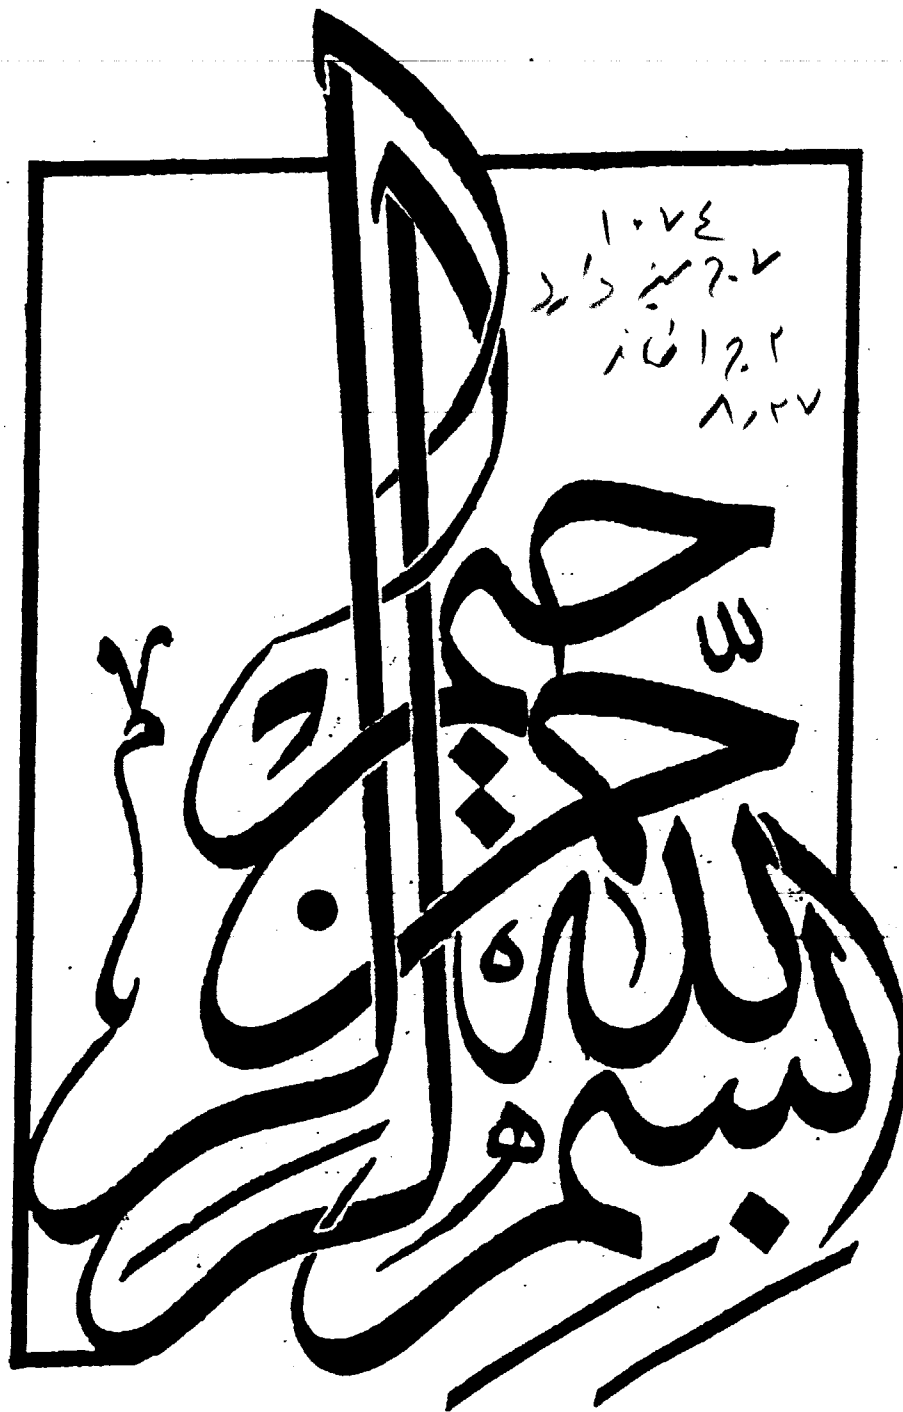 ١٠٧٤
٨,٢٧
بسم الله الرحمن الرحيم